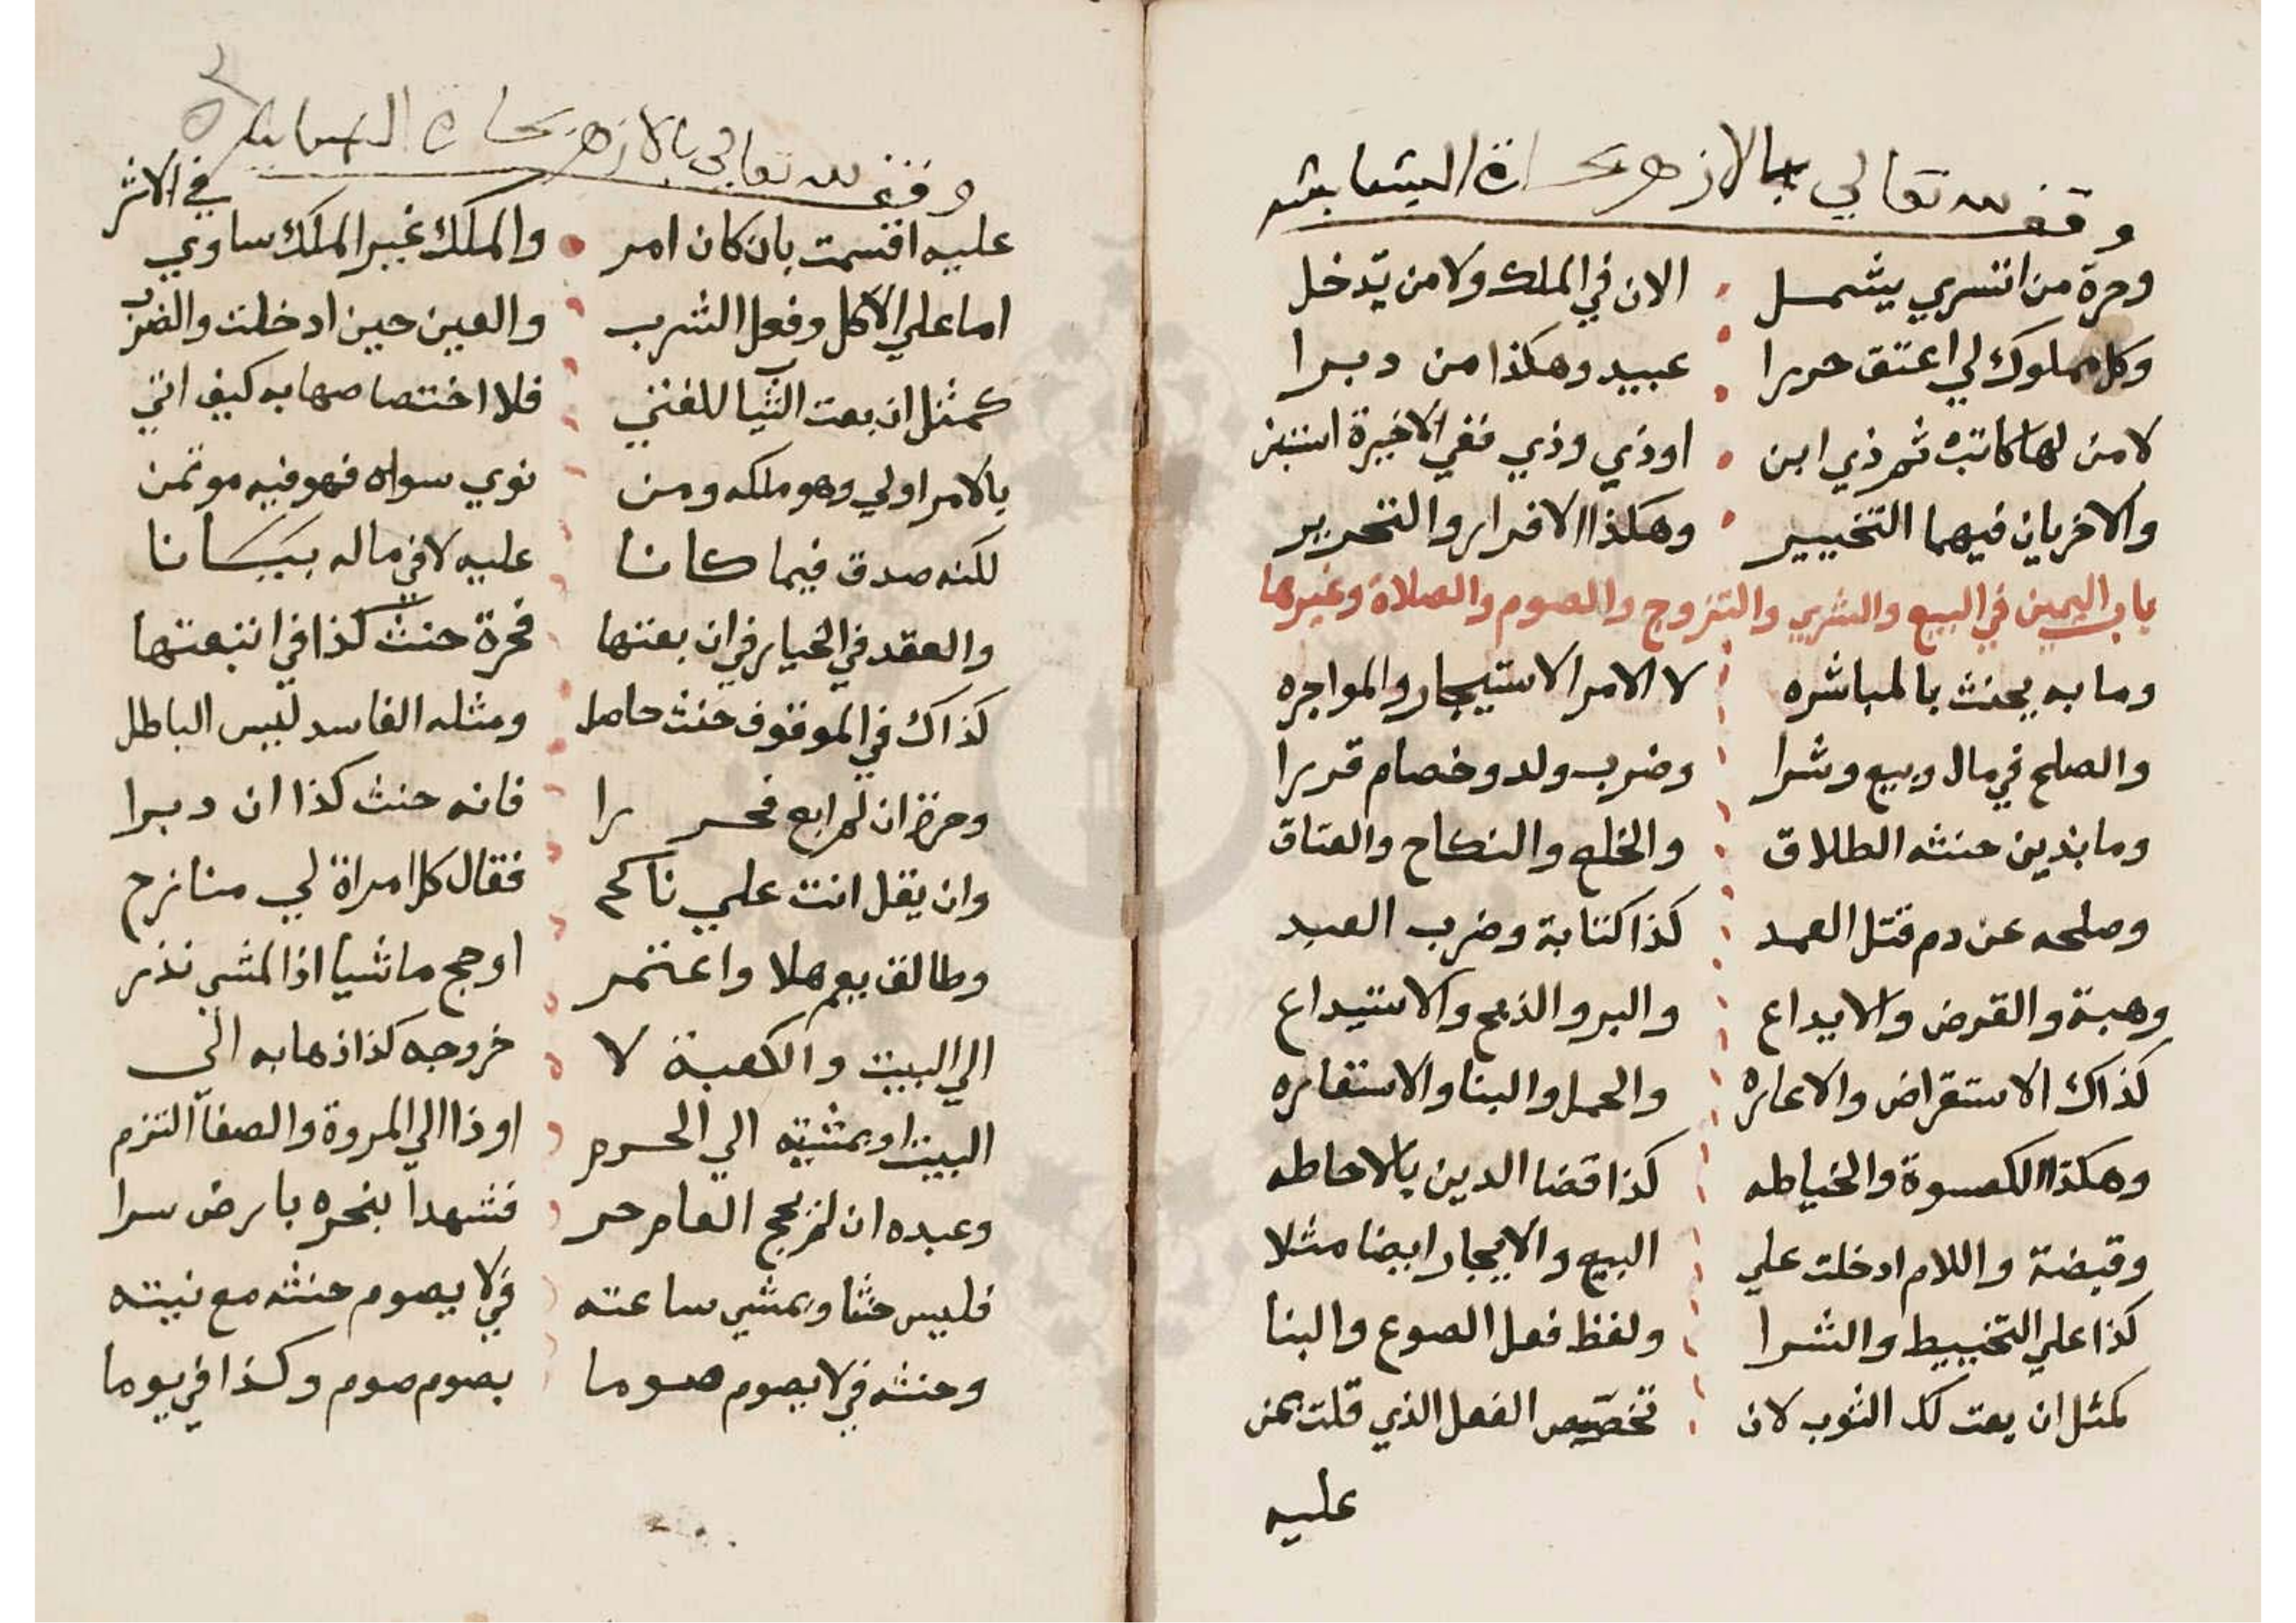 وقف لله تعالي بالازهر بحارة
وحرة من اتسري يشمل الان في الملك ولا من يدخل
وكل مملوك لي اعتق حررا عبيد وهكذا من دبرا
لا من لها كاتبه ثم ذي ابن او ذي وذي ففي الاخيرة استبن
والاخريان فيهما التخيير وهكذا الاقرار والتحرير
باب اليمين في البيع والشري والتزوج والصوم والصلاة وغيرها
وما به يحنث بالمباشره لا الامر الاستيجار والمواجره
والصلح في مال وبيع وشرا وضرب ولد وخصام قررا
وما بذين حنثه الطلاق والخلع والنكاح والعتاق
وصلحه عن دم قتل العمد كذا كتابة وضرب العبد
وهبة والقرض والايداع والبر والذبح والاستيداع
كذاك الاستقراض والاعاره والحمل والبنا والاستعاره
وهكذا الكسوة والخياطه كذا قضا الدين بالاحاطه
وقبضه واللام ادخلت علي البيع والايجار ايضا مثلا
كذا علي التخييط والشرا ولفظ فعل الصوغ والبنا
كمثل ان بعت لك الثوب لان تخصيص الفعل الذي قلت بمن
عليه
وقف لله تعالي بالازهر بحارة
في الاثر
عليه اقسمت بان كان امر والملك غير الملك ساوي
اما علي الاكل وفعل الشرب والعين حين ادخلت والضرب
كمثل ان بعت الثياب للغني فلا اختصاصها به كيف اتي
بالامر اولي وهو ملكه ومن نوي سواه فهو فيه موتمن
لكنه صدق فيما كانا عليه لا في ماله بيانا
والعقد في الخيار في ان بعتها فحرة حنث كذا في ابتعتها
كذاك في الموقوف حنث حاصل ومثله الفاسد ليس الباطل
وحرز ان لم ابع فحررا فانه حنث كذا ان دبرا
وان يقل انت علي ناكح فقال كل امراة لي منازح
وطالق يعم هلا واعتمر او حج ماشيا اذا المشي نذر
الي البيت والكعبة لا خروجه كذا ذهابه الي
البيت او بمشيه الي الحرم او ذا الي المروة والصفا التزم
وعبده ان لم يحج العام حر فشهدا بنحره بارض سرا
فليس حنثا وبمشي ساعته في لا يصوم حنثه مع نيته
وحنثه في لا يصوم صوما بصوم صوم وكذا في يوما